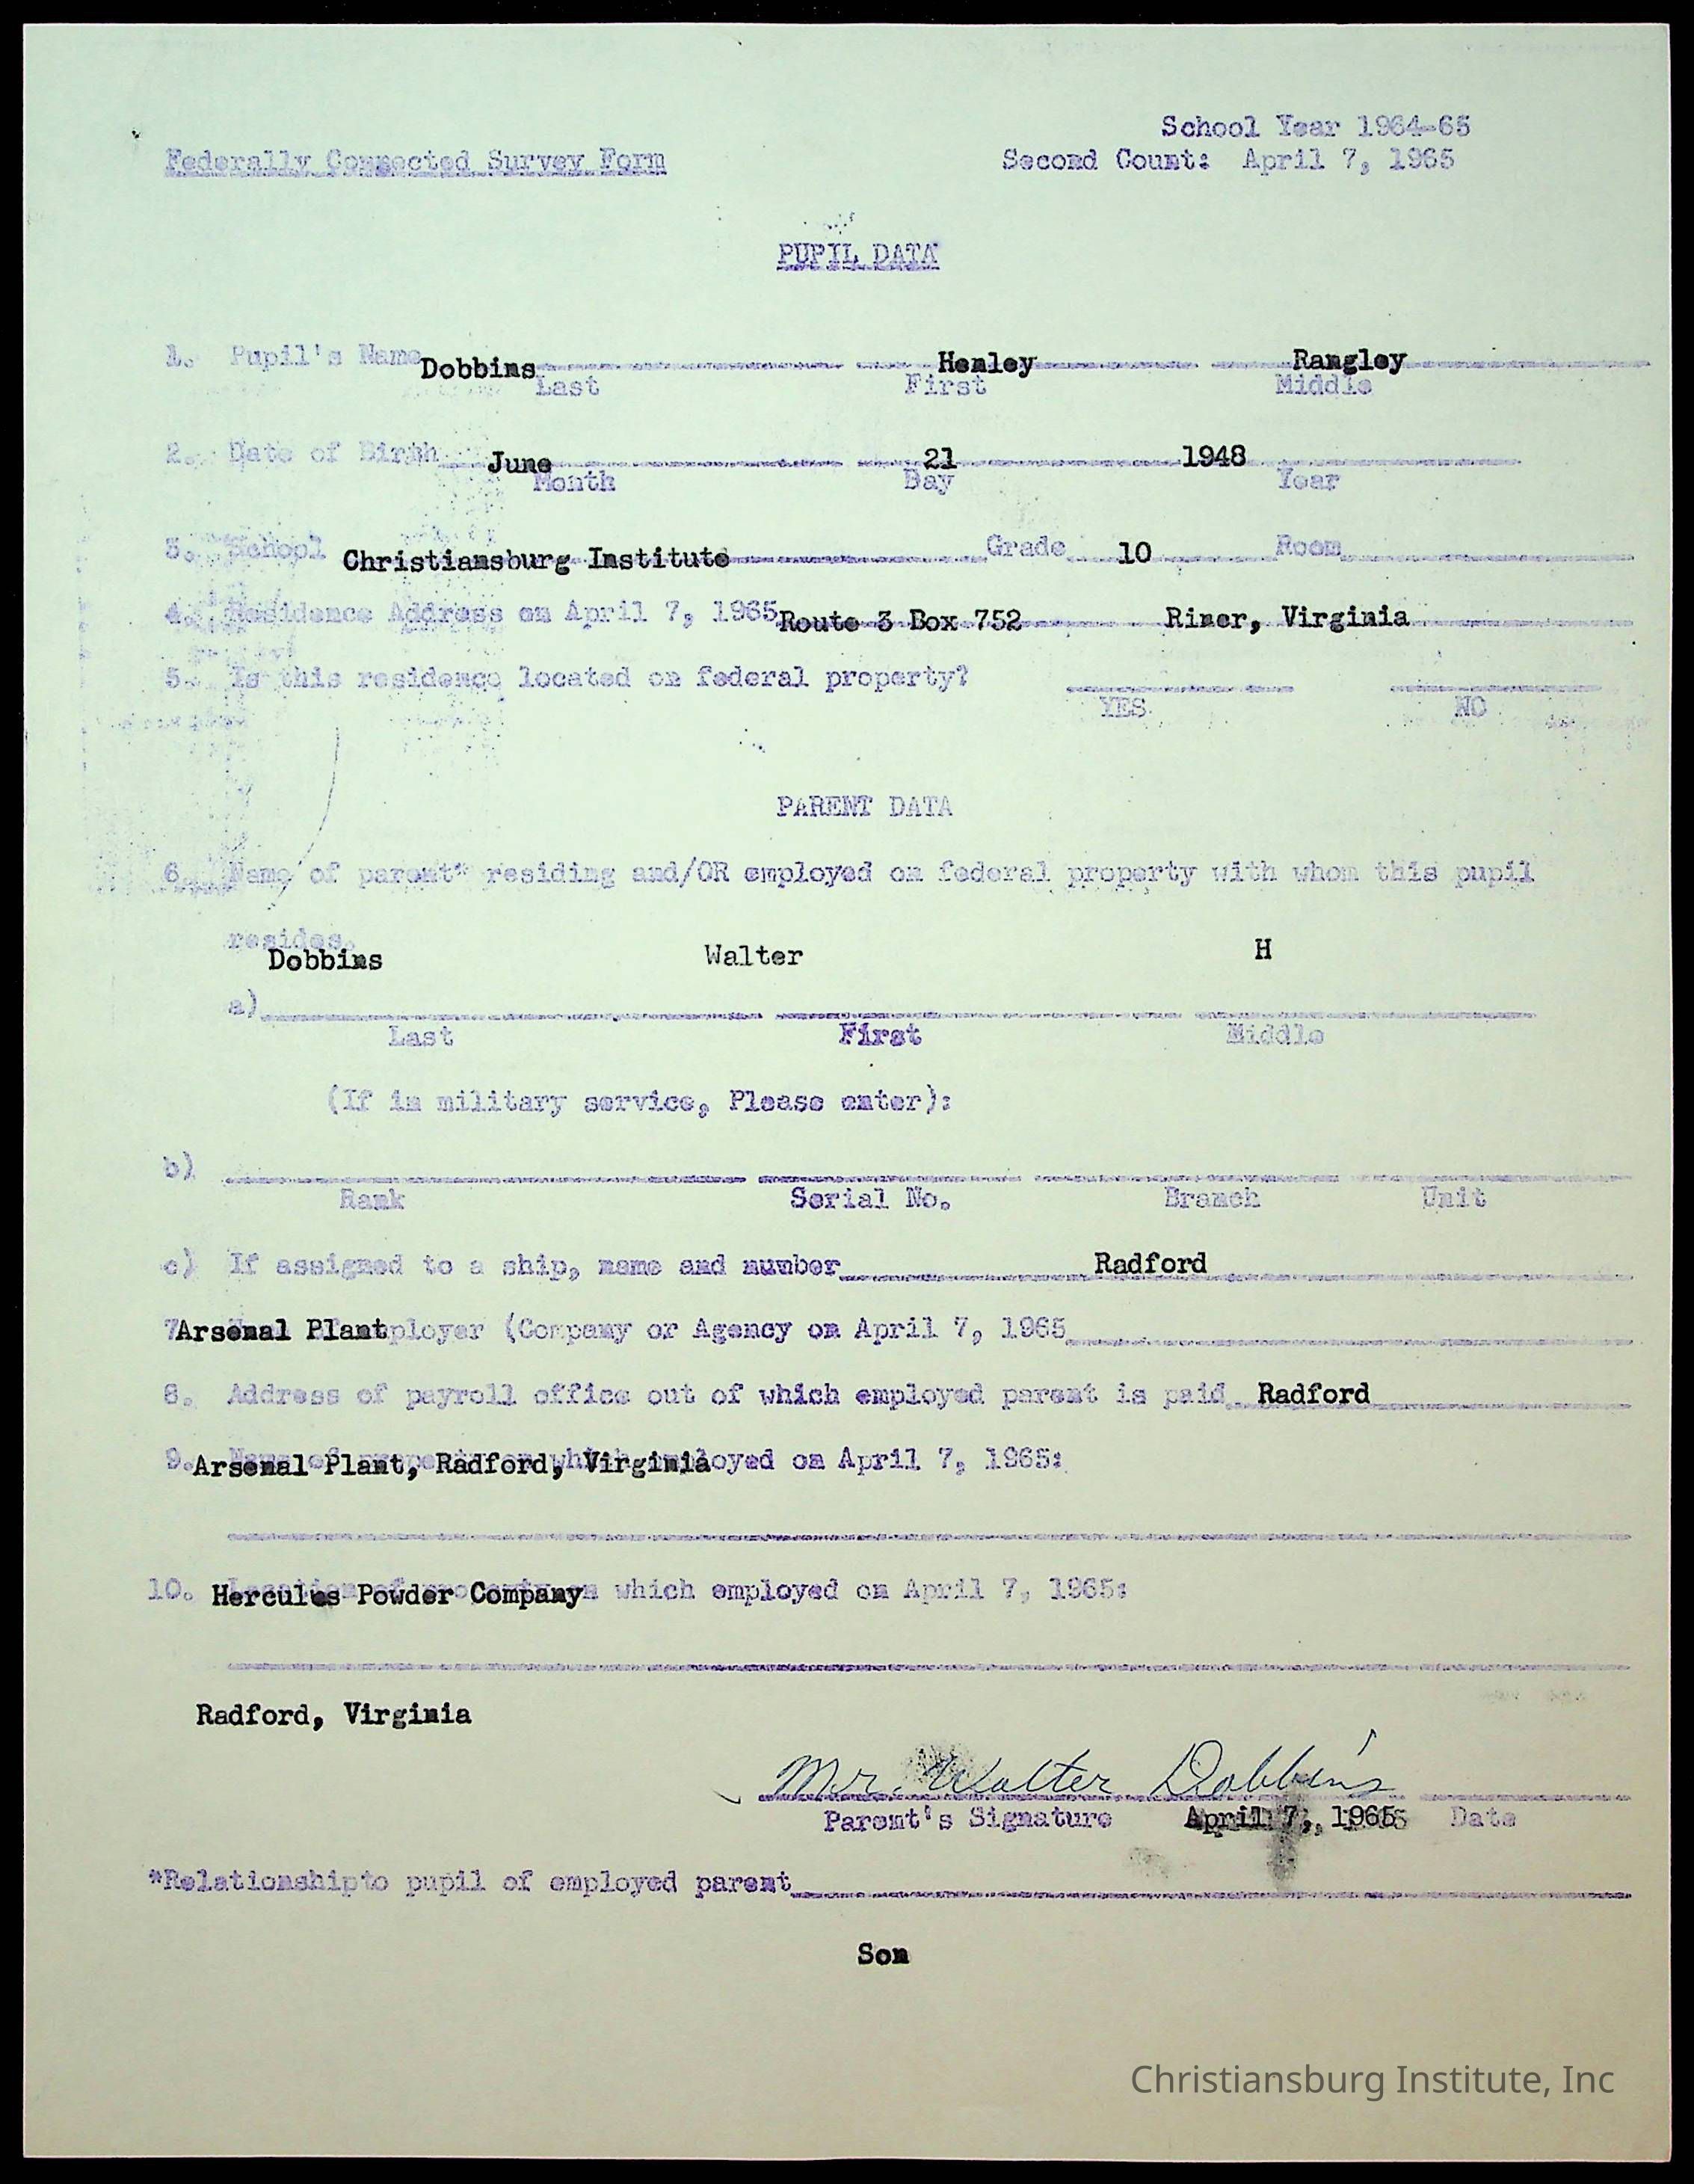 School Year 1964-65
Federally Connected Survey Form Second Count: April 7, 1965
PUPIL DATA
1. Pupil's Name Dobbins Henley Rangley
Last First Middle
2. Date of Birth June 21 1948
Month Day Year
3. School Christiansburg Institute Grade 10 Room
4. Residence Address on April 7, 1965 Route 3 Box 752 Riner, Virginia
5. Is this residence located on federal property?
YES NO
PARENT DATA
6. Name of parent* residing and/OR employed on federal property with whom this pupil
resides.
Dobbins Walter H
a)
Last First Middle
(If in military service, Please enter):
b)
Rank Serial No. Branch Unit
c) If assigned to a ship, name and number Radford
7 Arsenal Plant ployer (Company or Agency on April 7, 1965
8. Address of payroll office out of which employed parent is paid Radford
9. Arsenal Plant, Radford, Virginia oyed on April 7, 1965:
10. Hercules Powder Company which employed on April 7, 1965:
Radford, Virginia
Mr. Walter Dobbins
Parent's Signature April 7, 1965 Date
*Relationshipto pupil of employed parent
Son
Christiansburg Institute, Inc